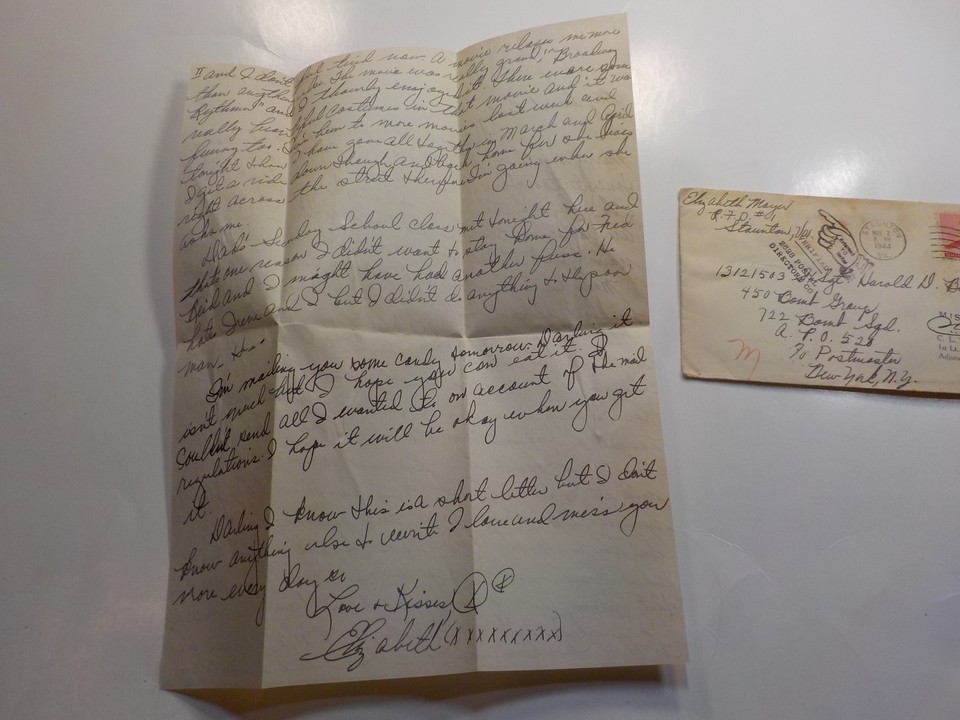 II and I don't feel tired now. A movie relaxes me more
than anything else. The movie was really grand, "Broadway
Rythmn" and I thourly enjoyed it. There were some
really beautiful costumes in that movie and it was
funny too. him to more movies last week and
tonight than I have gone all together in March and April
I get a ride down though and back home for she lives
right across the street therefore I'm going when she
asks me.
Dad's Sunday School class met tonight here and
thats one reason I didn't want to stay home for Fred
Beik and I might have had another fuss. He
hates Irene and I but I didn't do anything to the poor
man. Ha.
I'm mailing you some candy tomorrow. Darling it
isn't much and I hope you can eat it. I
couldn't send all I wanted to on account of the mail
regulations. I hope it will be okay when you get
it.
Darling I know this is a short letter but I don't
know anything else to write. I love and miss you
more every day
Love & Kisses, X
Elizabeth (XXXXXXXXX)
Elizabeth Mayer
R.F.D. #1
Staunton, Va.
STAUNTON
1944
VA.
DIRECTORY
13121503 Sgt. Harold D.
450 Bomb Group
722 Bomb Sqd.
A.P.O. 520
% Postmaster
New York, N.Y.
M
MIS
C. L.
1st Lt.